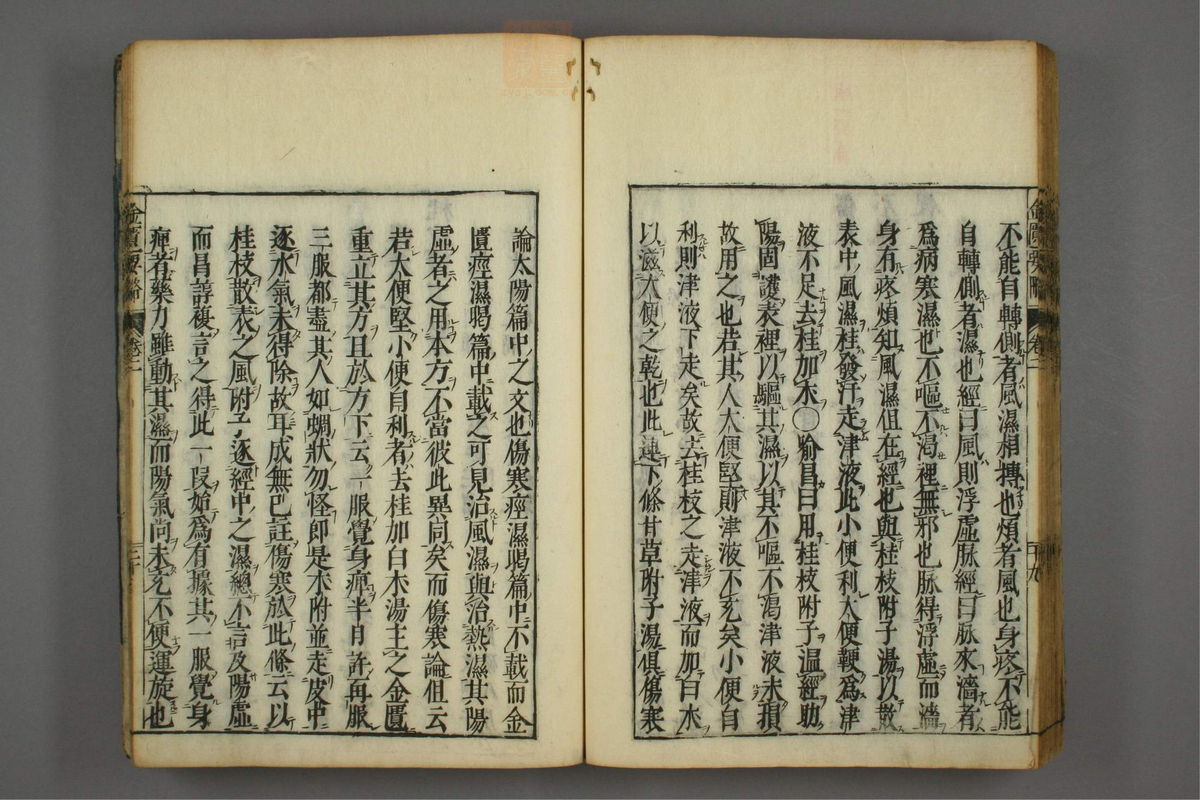 不能自轉側者風濕相搏也煩者風也身疼不能
自轉側者濕也經曰風則浮虛脉經曰脉來濇者
爲病寒濕也不嘔不渴裡無邪也脉得浮虛而濇
身有疼煩知風濕但在經也與桂枝附子湯以散
表中風濕桂發汗走津液此小便利大便鞕爲津
液不足去桂加朮○喻昌曰用桂枝附子溫經助
陽固護表裡以驅其濕以其不嘔不渴津液未損
故用之也若其人大便堅則津液不充矣小便自
利則津液下走矣故去桂枝之走津液而加白朮
以滋大便之乾也此連下條甘草附子湯俱傷寒
論太陽篇中之文也傷寒痙濕暍篇中不載而金
匱痙濕暍篇中載之可見治風濕與治熱濕其陽
虛者之用本方不當彼此異同矣而傷寒論但云
若大便堅小便自利者去桂加白朮湯主之金匱
重立其方且於方下云一服覺身痺半日許再服
三服都盡其人如蝟狀勿怪即是朮附並走皮中
逐水氣未得除故耳成無已註傷寒於此條云以
桂枝散表之風附子逐經中之濕總不言及陽虛
而昌諄複言之得此一段始爲有據其一服覺身
痺者藥力雖動其濕而陽氣尚未充不便運旋也